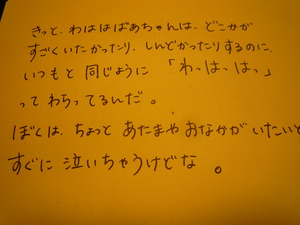 きっと、わははばあちゃんは、どこかが
すごくいたかったり、しんどかったりするのに、
いつもと同じように 「わっはっはっ」
ってわらってるんだ。
ぼくは、ちょっとあたまやおなかがいたいと
すぐに泣いちゃうけどな。